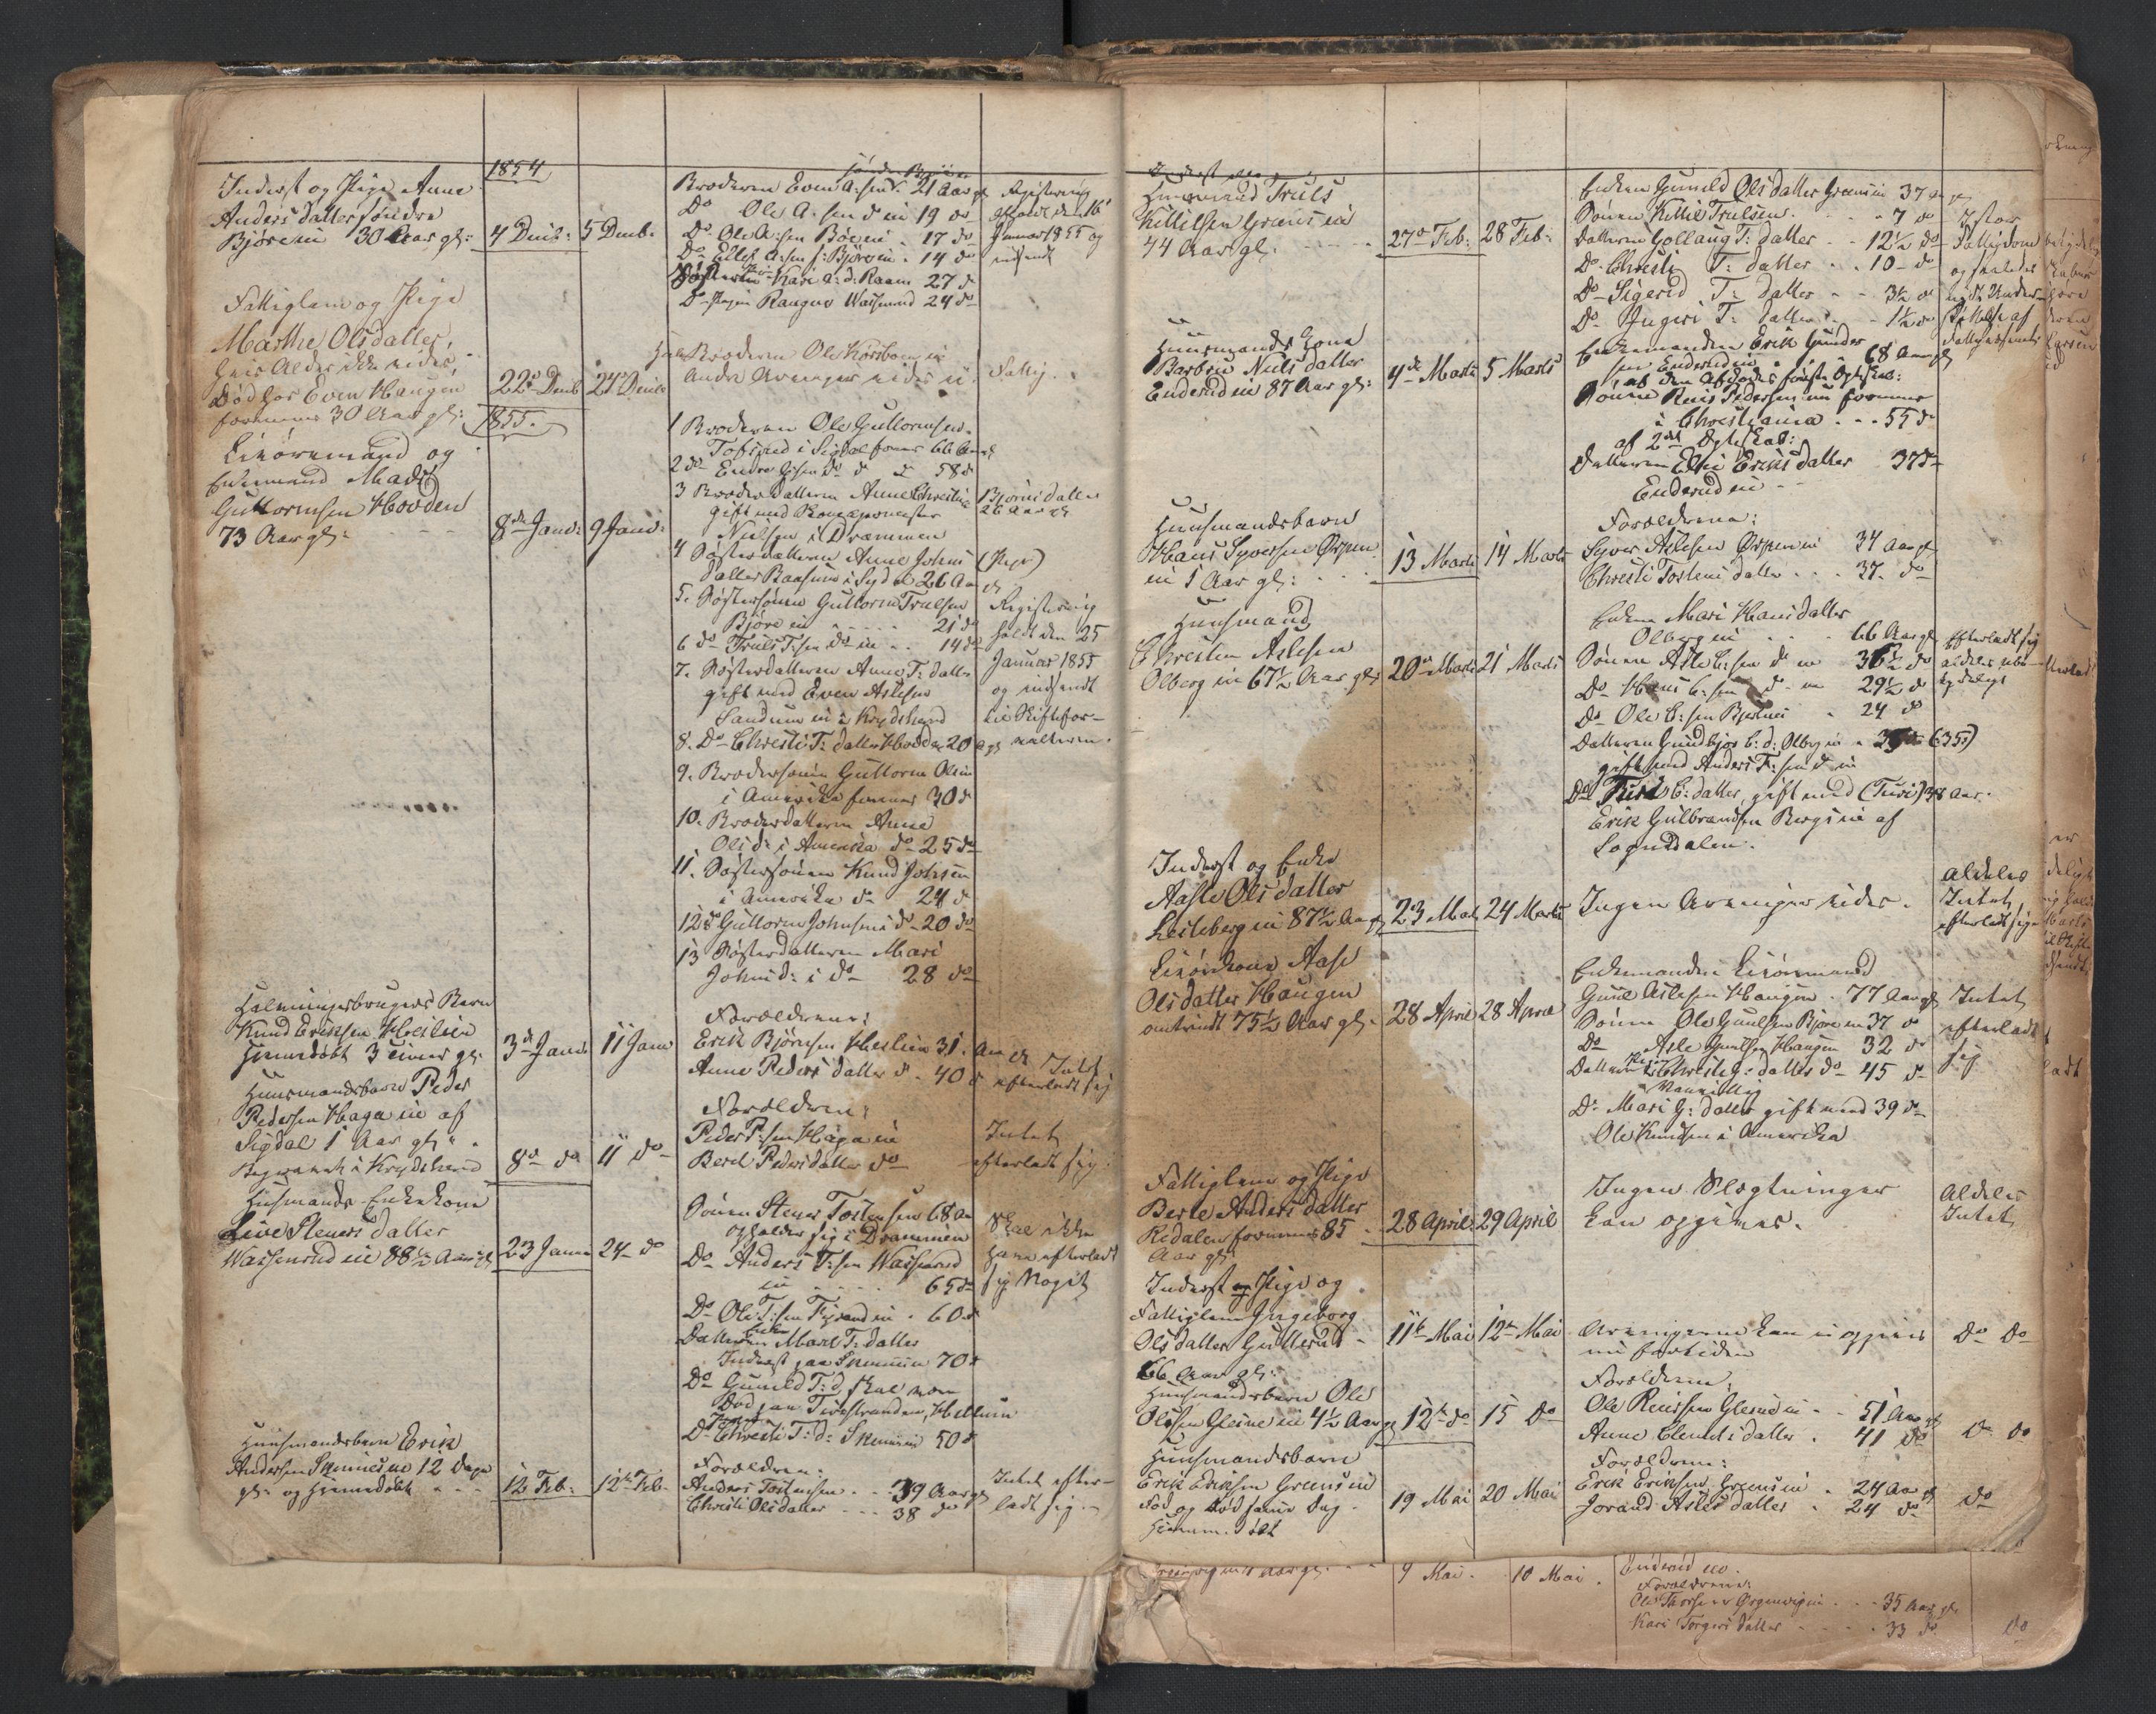 1854
Inderst og Pige Anne
Anders datter søndre
Bjøre ei 30 Aar gl:
4 Decb:
5 Decb.
søndre Bjøre
Broderen Even A:sen 21 Aar gl
Do Ole A:sen d ei 19 do
Do Ole A:sen Bøe ei 17 do
Do Ellef A:sen s: Bjøre ei 14 do
Søsteren Kari A:d: Raaen 27 d
Do Pigen Rangno Wasserud 24 do
Registering
afholdt den 16
Januar 1855 og
indsendt
Fattiglem og Pige
Marthe Olsdatter,
hvis Alder ikke vides,
Død hos Even Haugen
formenes 30 Aar gl:
22de Decb
24de Decbr
Halvbroderen Ole Korsboen ei
Andre Arvinger vides ei
Fattig.
1855.
Livøremand og
Enkemand Mads
Guttormsen Hovden
73 Aar gl:
8de Janv:
9 Janv:
1 Broderen Ole Guttormsen
Tofsrud i Sigdal formes 66 Aar gl
2 do Endre G:sen do d d 58 d
3 Broderdatteren Anne Christine Bjørnsdatter
gift med 26 Aar gl
Nielsen i Drammen
4 Søsterdatteren Anne Johns (Pige)
datter Baasum i Sigdal 26 Aar gl
5. Søstersønnen Guttorm Trulsen
Bjøre ei 21 d
6 do Truls T:sen do ei 14 do
7. Søsterdatteren Anne T: datter
gift med Even Aslesen
Sandum ei i Krydsherred
8. Do Christi T: datter Hovde 20 Aar gl
9. Brodersønnen Guttorm Olsen
i Amerika formes 30 d
10. Broderdatteren Anne
Olsd: i Amerika do 25 do
11. Søstersønnen Knud Johnsen
i Amerika do 24 d
12 do Guttorm Johnsen i do 20 do
13 Søsterdatteren Mari
Johnsd: i do 28 do
Registering
holdt den 25
Januar 1855
og indsendt
til Skiftefor-
valteren.
Halvningsbrugers Barn
Knud Eriksen Heilien
hjemmedøbt 3 Timer gl:
3de Janv
11 Janv
Forældrene:
Erik Bjørnsen Heilien 31 Aar gl
Anne Peders datter d 40 d
Intet
efterladt sig
Huusmandsbarn Peder
Pedersen Haga ei af
Sigdal 1 Aar gl:
Begravet i Krydsherred
8de do
11 do
Forældrene:
Peder P:sen Haga ei
Berel Pedersdatter do
Intet
efterladt sig.
Husmands Enkekone
Live Steners datter
Wassenrud ei 88½ Aar gl
23 Janv
24 do
Sønnen Stener Tostensen 68 Aar
opholder sig i Drammen
Do Anders T:sen Wasserud
ei 65 do
Do Ole T:sen Fyrand ei 60 d
Datteren Enken Marit T:datter
Inderst paa Skinnes ei 70 d
Do Gunild T:d: skal være
Død paa Tyrestranden, Hollum
Do Christi T:d: Skinnes ei 50 d
Skal ikke
have efterladt
sig Noget
Huusmandsbarn Erik
Andersen Skinnes ei 12 Dage
gl: og hjemmedøbt
12 Feb:
12te Feb.
Forældrene:
Anders Tostensen 39 Aar gl
Christi Olsdatter 38 do
Intet efter-
ladt sig.
Huusmand Truls
Kittilsen Grøens ei
44 Aar gl.
27de Feb:
28 Feb:
Enken Gunild Olsdatter Grøens ei 37 Aar gl
Sønnen Kittil Trulsen 7 d
Datteren Gollaug T: datter 12½ do
Do Christi T: datter 10 do
Do Sigrid T: datter 3½ d
Do Ingeri T: datter 1½ do
I stor
Fattigdom
og saaledes
nydt Under-
støttelse af
Fattigvæsenet
Huusmands Kone
Barbro Niels datter
Enderud ei 87 Aar gl:
4de Marts
5 Marts
Enkemanden Erik Gunder
sen Enderud ei 68 Aar gl
af den Afdødes første Ægteskab:
Sønnen Reier Pedersen ei formenes
i Christiania 55 d
af 2det Ægteskab:
Datteren Elsie Eriks datter 37 d
Enderud ei
Huusmandsbarn
Hans Syversen Ørpen
ei 1 Aar gl:
13 Marts
14 Marts
Forældrene:
Syver Aslesen Ørpen ei 34 Aar gl
Christi Tostens datter 37. do
Huusmand
Christen Aslesen
Olberg ei 67½ Aar gl:
20de Marts
21 Marts
Enken Mari Hansdatter
Olberg ei 66 Aar gl
Sønnen Asle C:sen d ei 36½ do
Do Hans C:sen d ei 29½ d
Do Ole C:sen Bjertnes 24 do
Datteren Gundbjør C:d: Olberg ei (35)
gift med Anders F:sen d ei
Do Turi C: datter, gift med (Turi) 38 Aar.
Erik Gulbrandsen Berg ei af
Sognedalen.
Efterladt sig
aldeles ube-
tydeligt
Inderst og Enke
Aaste Olsdatter
Leiteberg ei 87½ Aar gl
23 Mar
24 Marts
Ingen Arvinger vides.
Aldeles
Intet
efterladt sig
Livørskone Aase
Olsdatter Haugen
omtrendt 75½ Aar gl
28 April
28 April
Enkemanden Livøremand
Gunul Aslesen Haugen 77 Aar gl
Sønnen Ole Gunulsen Bjøre ei 37 d
Do Asle Gunulsen Haugen 32 d
Datteren Christi G: datter do 45 d
Vanvittig
Do Mari G: datter gift med 39 do
Ole Knudsen i Amerika
Intet
efterladt
sig
Fattiglem og Pige
Berte Anders datter
Redalen formenes 85
Aar gl:
28 April
29 April
Ingen Slægtninger
kan opgives.
Aldeles
Intet
Inderst Pige og
Fattiglem Ingeborg
Olsdatter Gulterud
66 Aar gl:
11te Mai
12te Mai
Arvingerne kan ei opgives
nu for tiden
Do Do
Huusmandsbarn Ole
Olsen Glesne ei 4½ Aar gl
12te do
15 Do
Forældrene:
Ole Reiersen Glesne ei 51 Aar gl
Anne Clemets datter 41 do
Do Do
Huusmandsbarn
Erik Eriksen Grøens ei
Fød og død samme Dag.
Hjemmedøbt
19 Mai
20 Mai
Forældrene:
Erik Eriksen Grøens ei 24 Aar gl
Jorand Asles datter 24 do
Do
9 Mai.
10 Mai.
Enderud ei
Forældrene:
Ole Thorsen Ørgenvig ei 35 Aar gl
Kari Torgers datter 33 do
Do